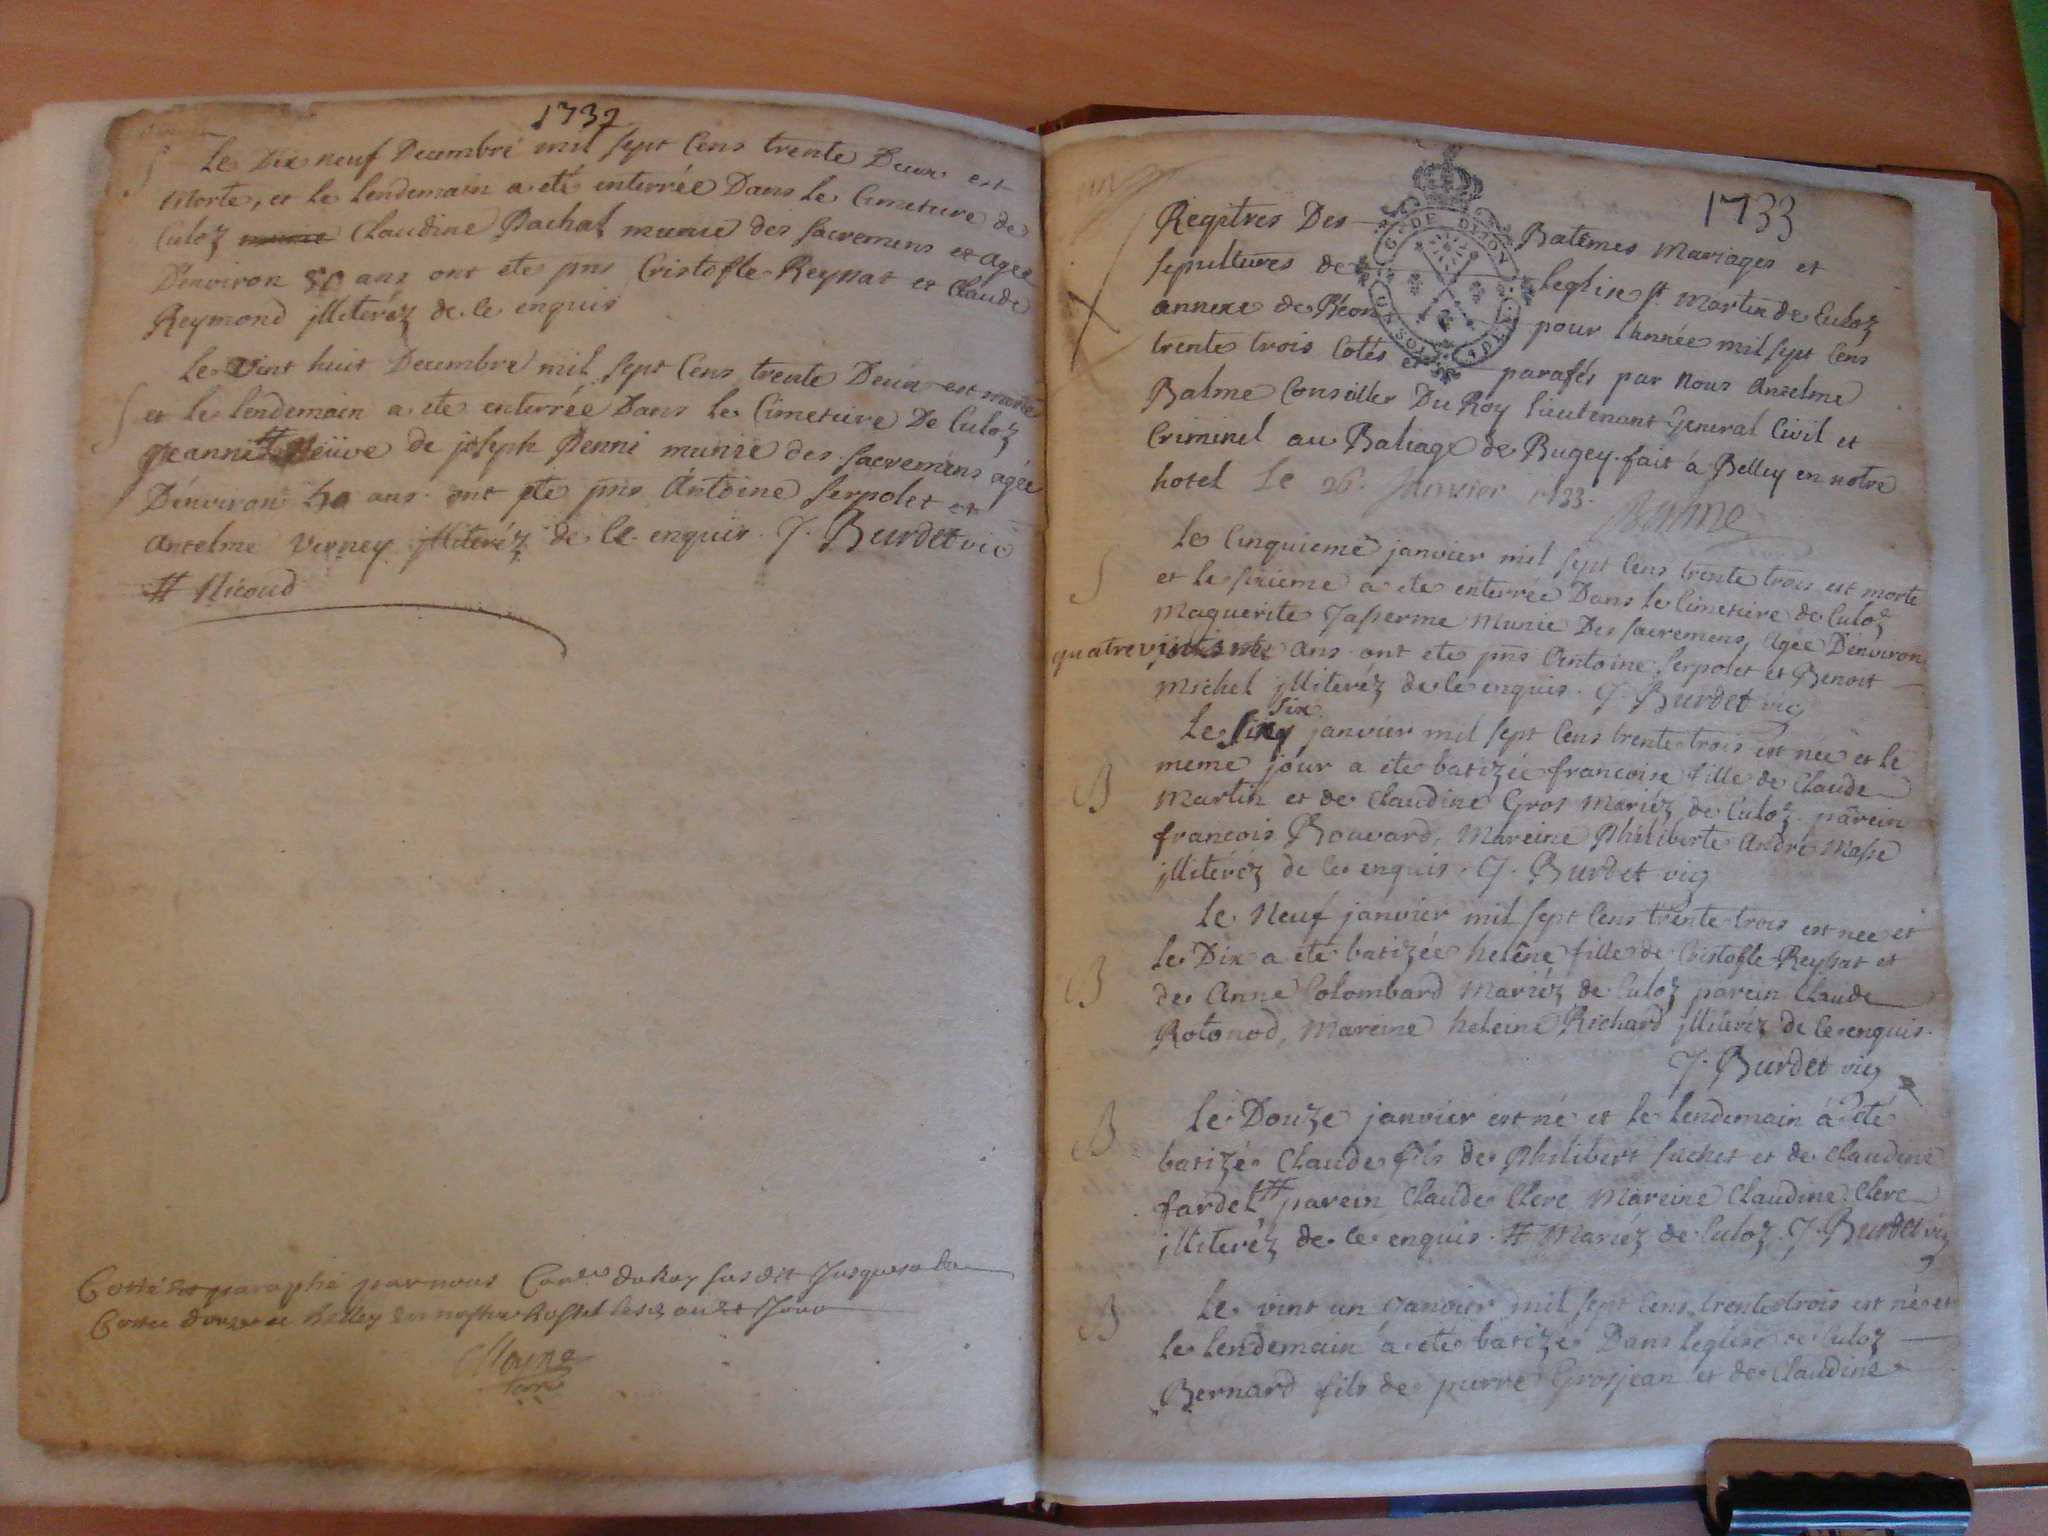 1732
S
Le Dix neuf Decembre mil sept Cens trente Deux est
morte, et le lendemain a eté enterrée Dans le Cimetiere de
Culoz Claudine Pachat munie des sacremens et agée
D'environ 50 ans ont ete pns Cristofle Reypat et Claude
Reymond illiteréz de ce enquis
Le vint huit Decembre mil sept Cens trente Deux est morte
S
et le lendemain a ete enterrée Dans le Cimetiere De Culoz
jeanne # veüve de joseph Penni munie des sacremens agée
D'environ ans ont ete pns Antoine Serpolet et
Anselme Verney illiteréz de ce enquis. J. Burdet vic
# Nicoud
Cotté et paraphé par nous du Roy susdit jusques a la
1733
Regitres Des Batêmes Mariages et
sepultures de leglise St Martin de Culoz
annexe de Béon pour lannée mil sept Cens
trente trois Cotés et parafés par Nous Anselme
Balme Conseiller Du Roy lieutenant General Civil et
Criminel au Baliage de Bugey fait à Belley en notre
hotel Le 26. Janvier 1733.
Balme
G. DE DIJON
S
Le Cinquieme janvier mil sept Cens trente trois est morte
et le sixieme a ete enterrée Dans le Cimetiere de Culoz
Maguerite Passerme Munie Des sacremens, Agée D'environ
quatrevint ans ont ete pns Antoine Serpolet et Benoit
Michel illiteréz de ce enquis. J. Burdet vic
six
Le janvier mil sept Cens trente trois est née et le
B
meme jour a ete batizée francoise fille de Claude
Martin et de Claudine Gros Mariéz de Culoz. parein
francois Bouvard, Mareine Philiberte André Masse
illiteréz de ce enquis. J. Burdet vic
Le Neuf janvier mil sept Cens trente trois est nee et
B
le Dix a ete batizée helêne fille de Cristofle Reypat et
de Anne Colombard Mariéz de Culoz parein Claude
Rotonod, Mareine heleine Richard illiteréz de ce enquis.
J. Burdet vic
B
Le Douze janvier est né et le lendemain à eté
batizé Claude fils de Philibert Suchet et de Claudine
fardel # parein Claude Clerc Mareine Claudine Clerc
illiteréz de ce enquis. # Mariéz de Culoz. J. Burdet vic
B
Le vint un janvier mil sept Cens trente trois est né et
le lendemain a ete batizé Dans leglise de Culoz
Bernard fils de pierre Grosjean et de Claudine